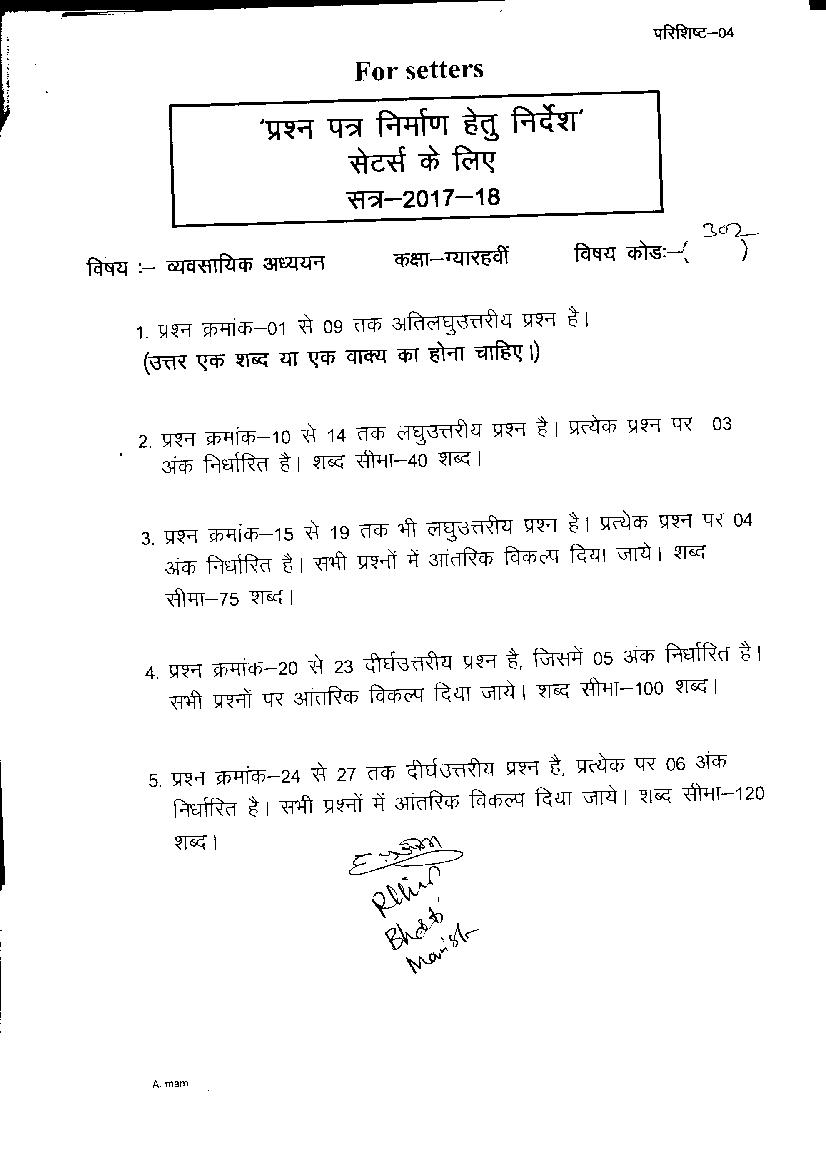 परिशिष्ट–04
For setters
'प्रश्न पत्र निर्माण हेतु निर्देश'
सेटर्स के लिए
सत्र–2017–18
विषय :– व्यवसायिक अध्ययन कक्षा–ग्यारहवीं विषय कोडः–( 302 )
1. प्रश्न क्रमांक–01 से 09 तक अतिलघुउत्तरीय प्रश्न है।
(उत्तर एक शब्द या एक वाक्य का होना चाहिए।)
2. प्रश्न क्रमांक–10 से 14 तक लघुउत्तरीय प्रश्न है। प्रत्येक प्रश्न पर 03
अंक निर्धारित है। शब्द सीमा–40 शब्द।
3. प्रश्न क्रमांक–15 से 19 तक भी लघुउत्तरीय प्रश्न है। प्रत्येक प्रश्न पर 04
अंक निर्धारित है। सभी प्रश्नों में आंतरिक विकल्प दिया जाये। शब्द
सीमा–75 शब्द।
4. प्रश्न क्रमांक–20 से 23 दीर्घउत्तरीय प्रश्न है, जिसमें 05 अंक निर्धारित है।
सभी प्रश्नों पर आंतरिक विकल्प दिया जाये। शब्द सीमा–100 शब्द।
5. प्रश्न क्रमांक–24 से 27 तक दीर्घउत्तरीय प्रश्न है, प्रत्येक पर 06 अंक
निर्धारित है। सभी प्रश्नों में आंतरिक विकल्प दिया जाये। शब्द सीमा–120
शब्द।
A. mam